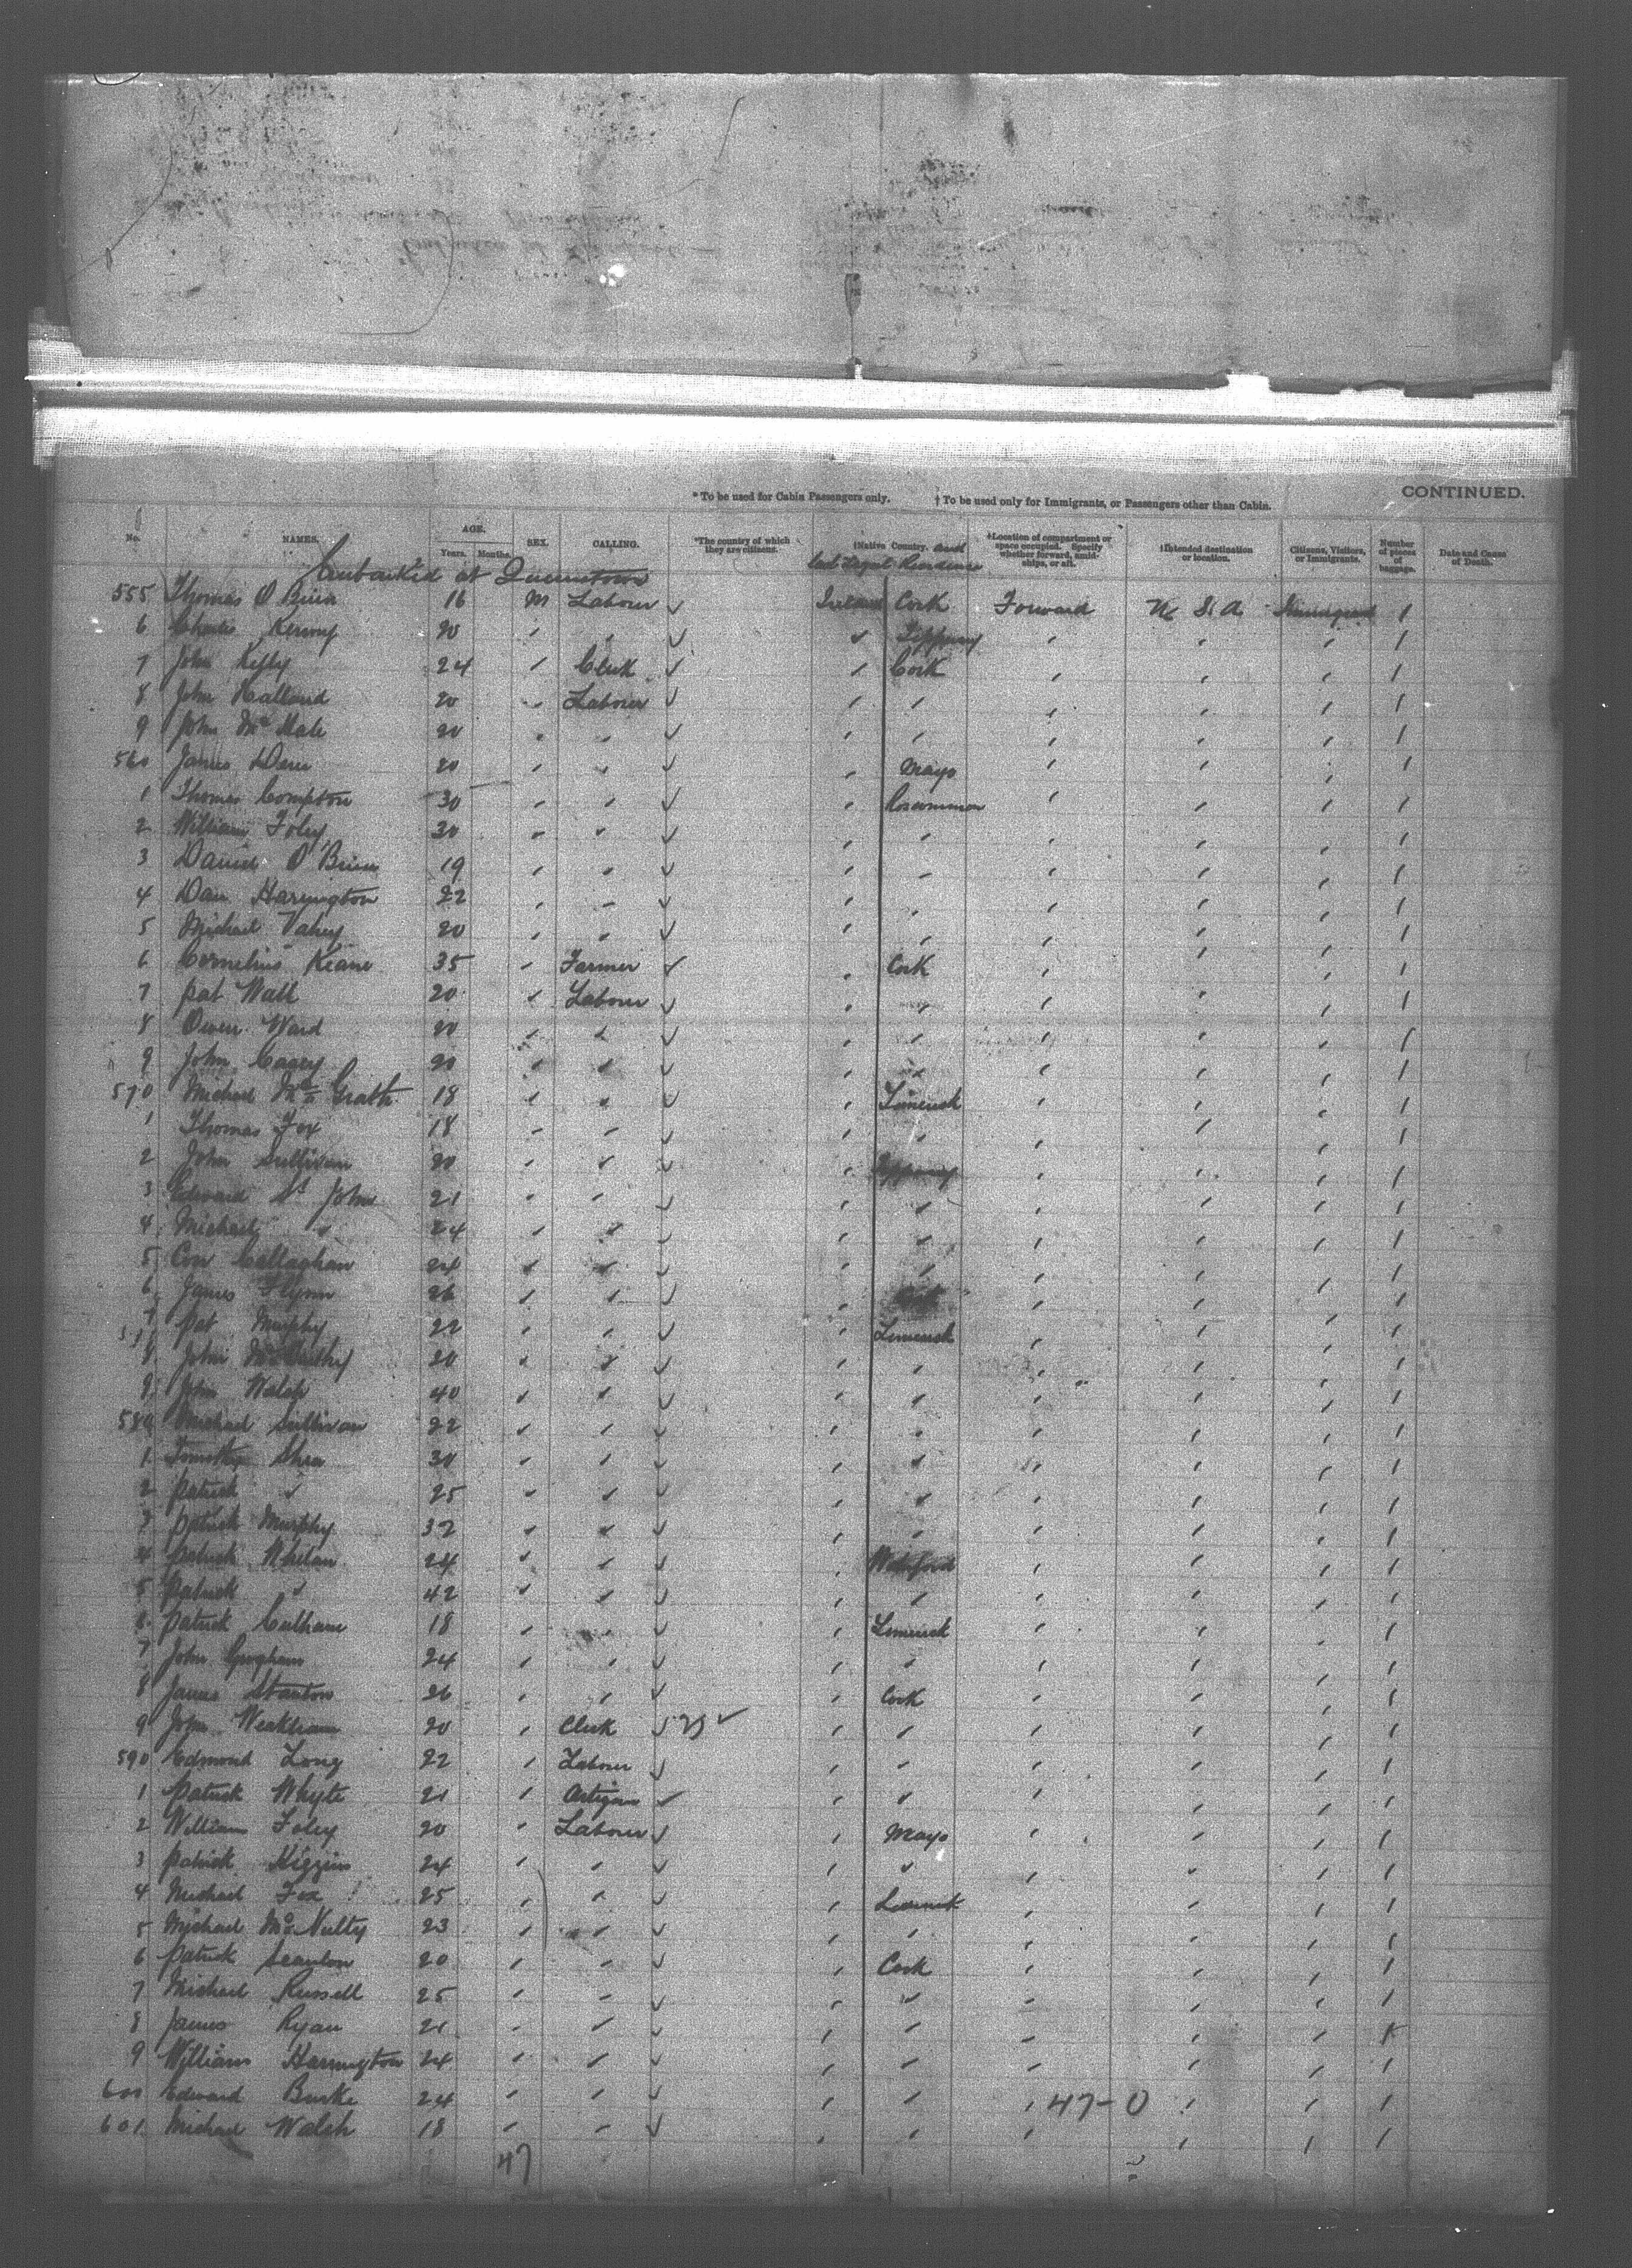 CONTINUED.
* To be used for Cabin Passengers only. † To be used only for Immigrants, or Passengers other than Cabin.
No. NAMES. AGE. Years. Months. SEX. CALLING. *The country of which they are citizens. †Native Country. and last legal Residence †Location of compartment or space occupied. Specify whether forward, amidships, or aft. †Intended destination or location. Citizens, Visitors, or Immigrants. Number of pieces of baggage. Date and Cause of Death.
Embarked at Queenstown
555 Thomas O'Brien 16 M Labourer ✓ Ireland Cork Forward U. S. A. Immigrant 1
6 Charles 20 " " ✓ " Tipperary " " " 1
7 John 24 " Clerk ✓ " Cork " " " 1
8 John Holland 20 " Labourer ✓ " " " " " 1
9 John McHale 20 " " ✓ " " " " " 1
560 James 20 " " ✓ " Mayo " " " 1
1 Thomas Compton 30 " " ✓ " Roscommon " " " 1
2 William Foley 30 " " ✓ " " " " " 1
3 Daniel O'Brien 19 " " ✓ " " " " " 1
4 Dan Harrington 22 " " ✓ " " " " " 1
5 Michael Vahey 20 " " ✓ " " " " " 1
6 Cornelius Keane 35 " Farmer ✓ " Cork " " " 1
7 Pat Wall 20 " Labourer ✓ " " " " " 1
8 Owen Ward 20 " " ✓ " " " " " 1
9 John Casey 20 " " ✓ " " " " " 1
570 Michael McGrath 18 " " ✓ " Limerick " " " 1
1 Thomas Fox 18 " " ✓ " " " " " 1
2 John Sullivan 20 " " ✓ " Tipperary " " " 1
3 Edward St John 21 " " ✓ " " " " " 1
4 Michael " 24 " " ✓ " " " " " 1
5 Con Callaghan 24 " " ✓ " " " " " 1
6 James Flynn 26 " " ✓ " Cork " " " 1
7 Pat Murphy 22 " " ✓ " Limerick " " " 1
8 John McCarthy 20 " " ✓ " " " " " 1
9 John Walsh 40 " " ✓ " " " " " 1
580 Michael Sullivan 22 " " ✓ " " " " " 1
1 Timothy Shea 30 " " ✓ " " " " " 1
2 Patrick " 25 " " ✓ " " " " " 1
3 Patrick Murphy 32 " " ✓ " " " " " 1
4 Patrick Whelan 24 " " ✓ " Waterford " " " 1
5 Patrick " 42 " " ✓ " " " " " 1
6 Patrick Culhane 18 " " ✓ " Limerick " " " 1
7 John 24 " " ✓ " " " " " 1
8 James Stanton 26 " " ✓ " Cork " " " 1
9 John Weakham 20 " Clerk ✓ " " " " " 1
590 Edmond Long 22 " Labourer ✓ " " " " " 1
1 Patrick Whyte 21 " Artizan ✓ " " " " " 1
2 William Foley 20 " Labourer ✓ " Mayo " " " 1
3 Patrick Higgins 24 " " ✓ " " " " " 1
4 Michael Fox 25 " " ✓ " Limerick " " " 1
5 Michael McNulty 23 " " ✓ " " " " " 1
6 Patrick Scanlon 20 " " ✓ " Cork " " " 1
7 Michael Russell 25 " " ✓ " " " " " 1
8 James Ryan 21 " " ✓ " " " " " 1
9 William Harrington 24 " " ✓ " " " " " 1
600 Edward Burke 24 " " ✓ " " " 47-0 " " 1
601 Michael Walsh 18 " " ✓ " " " " " 1
47